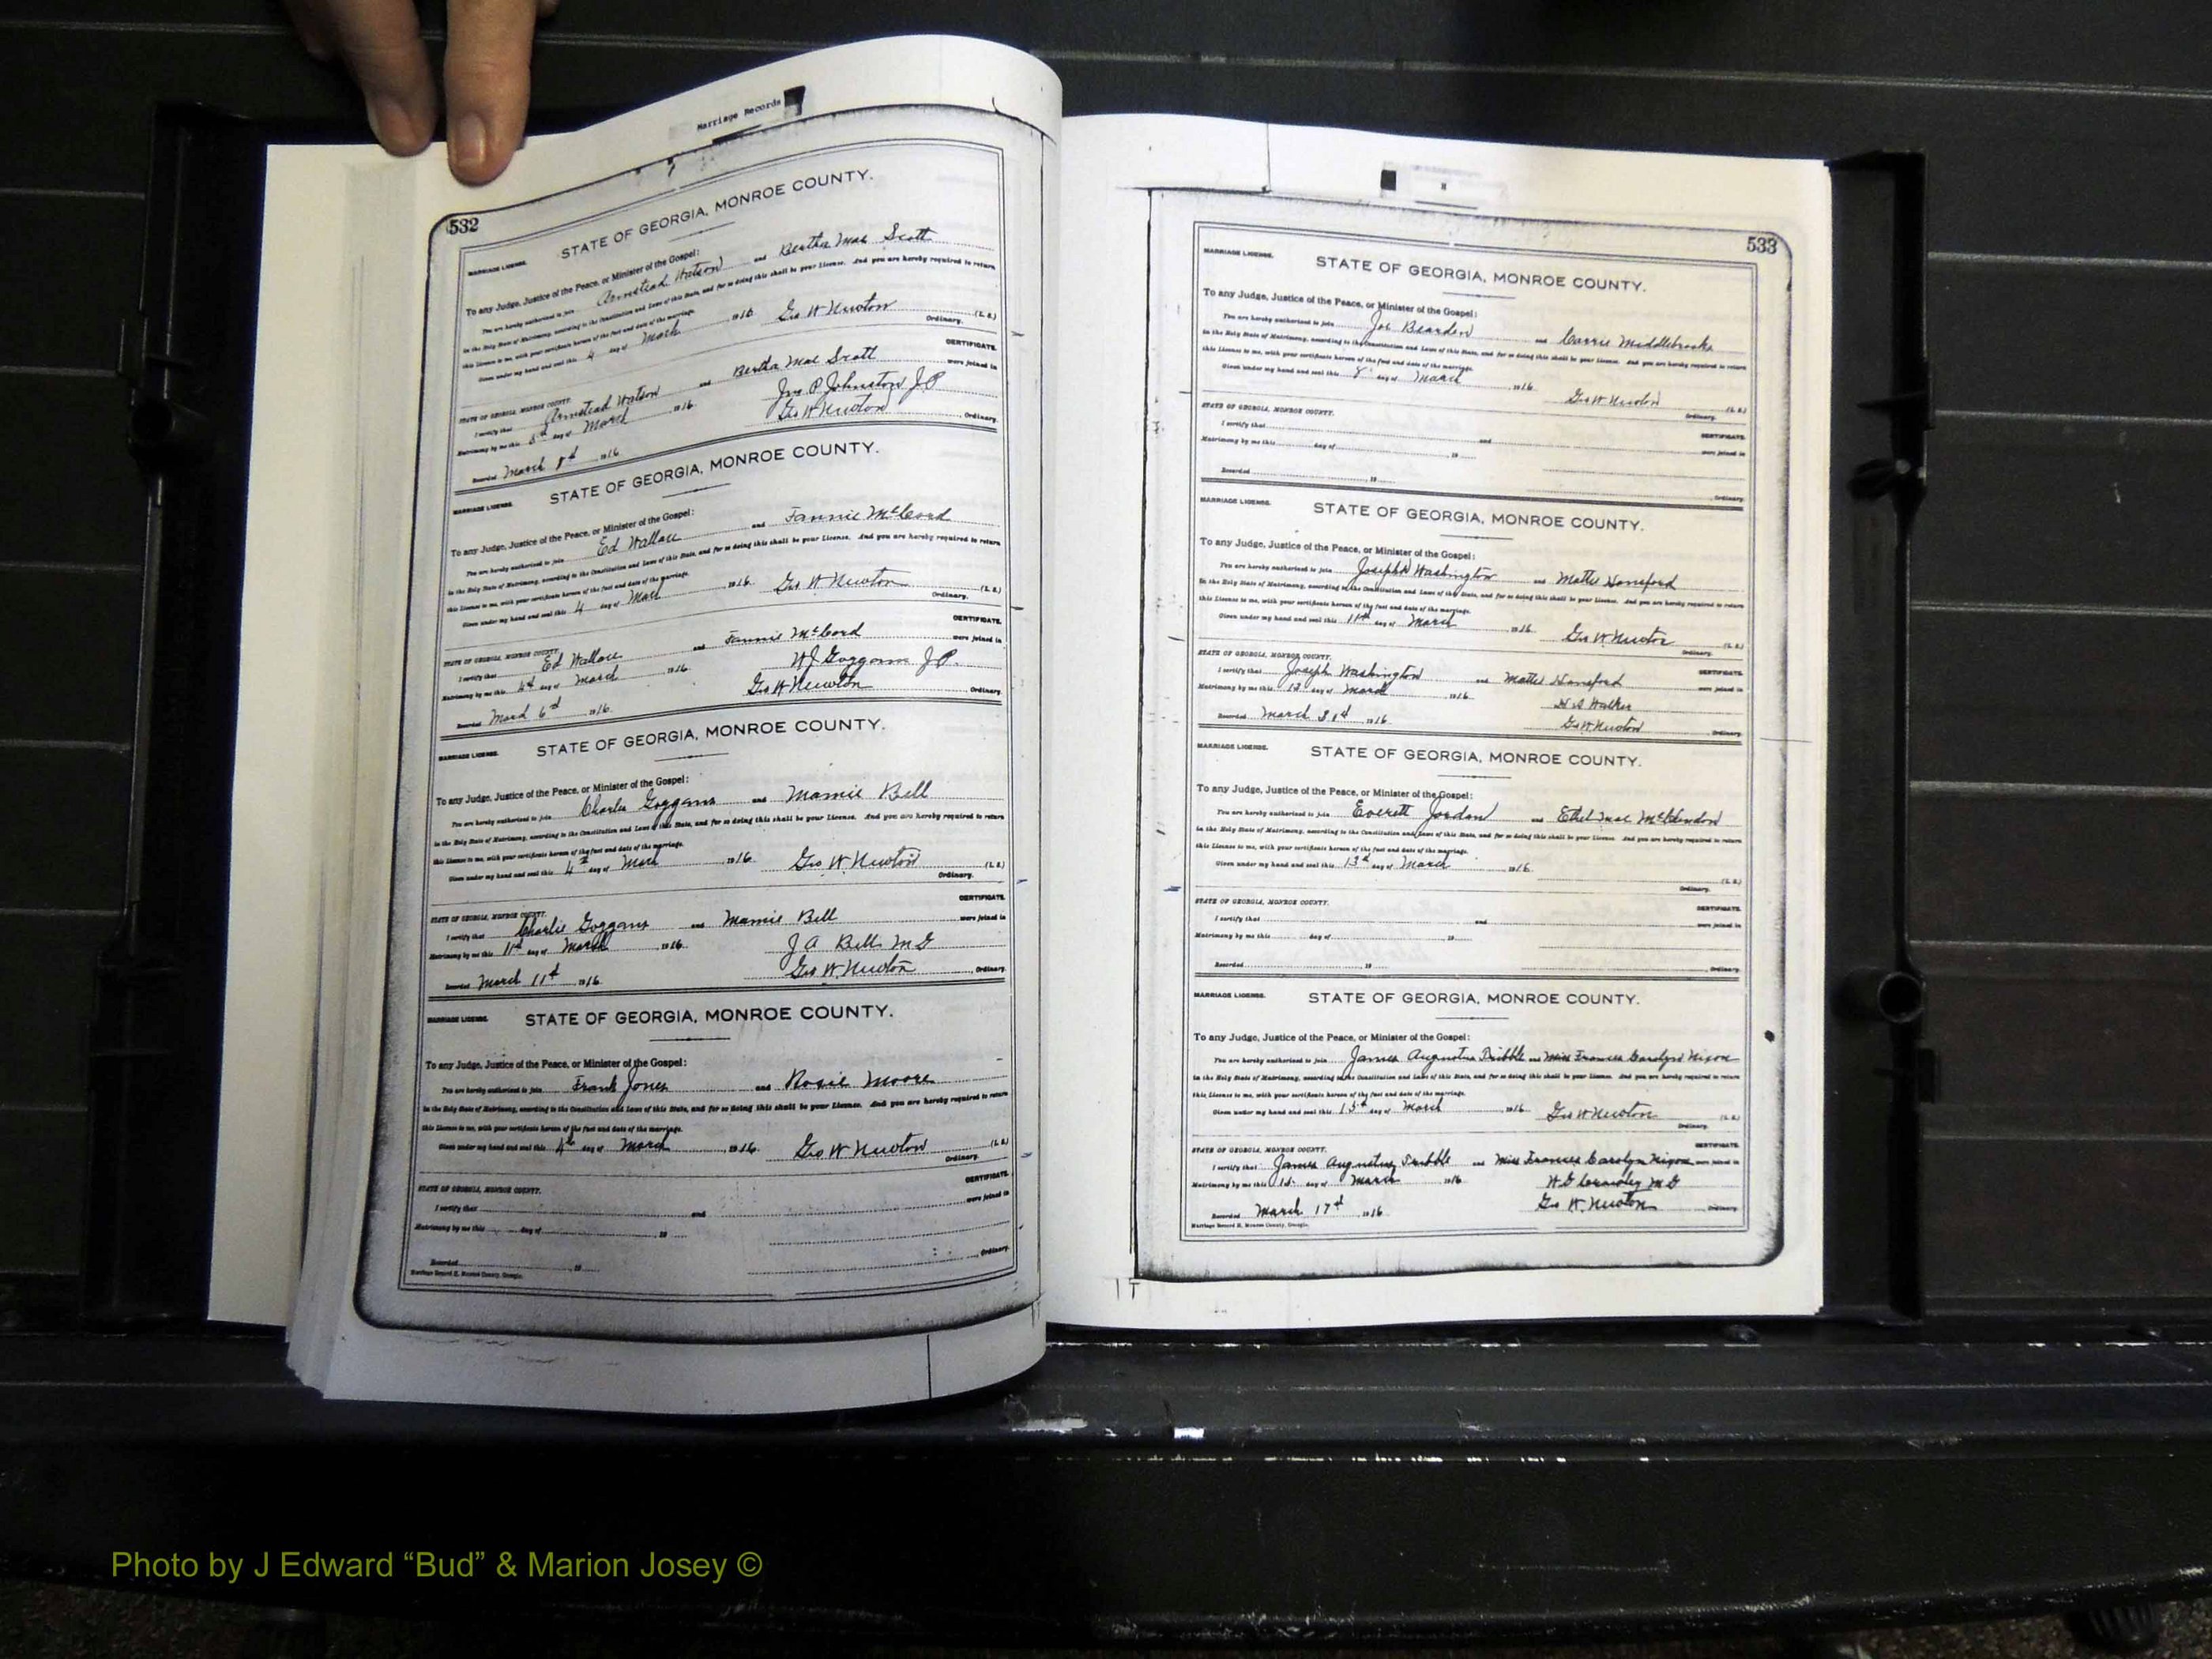 Marriage Records
532
MARRIAGE LICENSE.
STATE OF GEORGIA, MONROE COUNTY.
To any Judge, Justice of the Peace, or Minister of the Gospel:
You are hereby authorized to join Armstead Watson and Bertha Mae Scott
in the Holy State of Matrimony, according to the Constitution and Laws of this State, and for so doing this shall be your License. And you are hereby required to return
this License to me, with your certificate hereon of the fact and date of the marriage.
Given under my hand and seal this 4 day of March 1916. Geo W Newton (L. S.)
Ordinary.
STATE OF GEORGIA, MONROE COUNTY. CERTIFICATE.
I certify that Armstead Watson and Bertha Mae Scott were joined in
Matrimony by me this day of March 1916. Jno P Johnston J.P
Recorded March 1916 Geo W Newton Ordinary.
MARRIAGE LICENSE.
STATE OF GEORGIA, MONROE COUNTY.
To any Judge, Justice of the Peace, or Minister of the Gospel:
You are hereby authorized to join Ed Wallace and Fannie McCord
in the Holy State of Matrimony, according to the Constitution and Laws of this State, and for so doing this shall be your License. And you are hereby required to return
this License to me, with your certificate hereon of the fact and date of the marriage.
Given under my hand and seal this 4 day of March 1916. Geo W Newton (L. S.)
Ordinary.
STATE OF GEORGIA, MONROE COUNTY. CERTIFICATE.
I certify that Ed Wallace and Fannie McCord were joined in
Matrimony by me this day of March 1916. W J Goggans J.P.
Recorded March 1916. Geo W Newton Ordinary.
MARRIAGE LICENSE.
STATE OF GEORGIA, MONROE COUNTY.
To any Judge, Justice of the Peace, or Minister of the Gospel:
You are hereby authorized to join Charles Goggans and Mamie Bell
in the Holy State of Matrimony, according to the Constitution and Laws of this State, and for so doing this shall be your License. And you are hereby required to return
this License to me, with your certificate hereon of the fact and date of the marriage.
Given under my hand and seal this 4th day of March 1916. Geo W. Newton (L. S.)
Ordinary.
STATE OF GEORGIA, MONROE COUNTY. CERTIFICATE.
I certify that Charlie Goggans and Mamie Bell were joined in
Matrimony by me this 11th day of March 1916. J A Bell M G
Recorded March 11th 1916. Geo W. Newton, Ordinary.
MARRIAGE LICENSE.
STATE OF GEORGIA, MONROE COUNTY.
To any Judge, Justice of the Peace, or Minister of the Gospel:
You are hereby authorized to join Frank Jones and Rosie Moore
in the Holy State of Matrimony, according to the Constitution and Laws of this State, and for so doing this shall be your License. And you are hereby required to return
this License to me, with your certificate hereon of the fact and date of the marriage.
Given under my hand and seal this 4th day of March 1916. Geo W Newton (L. S.)
Ordinary.
STATE OF GEORGIA, MONROE COUNTY. CERTIFICATE.
I certify that and were joined in
Matrimony by me this day of 19
Recorded 19 Ordinary.
Marriage Record H, Monroe County, Georgia.
533
MARRIAGE LICENSE.
STATE OF GEORGIA, MONROE COUNTY.
To any Judge, Justice of the Peace, or Minister of the Gospel:
You are hereby authorized to join Joe Bearden and Carrie Middlebrooks
in the Holy State of Matrimony, according to the Constitution and Laws of this State, and for so doing this shall be your License. And you are hereby required to return
this License to me, with your certificate hereon of the fact and date of the marriage.
Given under my hand and seal this 8 day of March 1916. Geo W Newton (L. S.)
Ordinary.
STATE OF GEORGIA, MONROE COUNTY. CERTIFICATE.
I certify that and were joined in
Matrimony by me this day of 19
Recorded 19 Ordinary.
MARRIAGE LICENSE.
STATE OF GEORGIA, MONROE COUNTY.
To any Judge, Justice of the Peace, or Minister of the Gospel:
You are hereby authorized to join Joseph Washington and Mattie Hansford
in the Holy State of Matrimony, according to the Constitution and Laws of this State, and for so doing this shall be your License. And you are hereby required to return
this License to me, with your certificate hereon of the fact and date of the marriage.
Given under my hand and seal this 11th day of March 1916. Geo W. Newton (L. S.)
Ordinary.
STATE OF GEORGIA, MONROE COUNTY. CERTIFICATE.
I certify that Joseph Washington and Mattie Hansford were joined in
Matrimony by me this 12 day of March 1916. Walker
Recorded March 1916 Geo W Newton Ordinary.
MARRIAGE LICENSE.
STATE OF GEORGIA, MONROE COUNTY.
To any Judge, Justice of the Peace, or Minister of the Gospel:
You are hereby authorized to join Everett Jordan and Ethel Mae McClendon
in the Holy State of Matrimony, according to the Constitution and Laws of this State, and for so doing this shall be your License. And you are hereby required to return
this License to me, with your certificate hereon of the fact and date of the marriage.
Given under my hand and seal this 13th day of March 1916. (L. S.)
Ordinary.
STATE OF GEORGIA, MONROE COUNTY. CERTIFICATE.
I certify that and were joined in
Matrimony by me this day of 19
Recorded 19 Ordinary.
MARRIAGE LICENSE.
STATE OF GEORGIA, MONROE COUNTY.
To any Judge, Justice of the Peace, or Minister of the Gospel:
You are hereby authorized to join James Augustus Tribble and Miss Frances Carolyn Nixon
in the Holy State of Matrimony, according to the Constitution and Laws of this State, and for so doing this shall be your License. And you are hereby required to return
this License to me, with your certificate hereon of the fact and date of the marriage.
Given under my hand and seal this 15th day of March 1916 Geo W Newton (L. S.)
Ordinary.
STATE OF GEORGIA, MONROE COUNTY. CERTIFICATE.
I certify that James Augustus Tribble and Miss Frances Carolyn Nixon were joined in
Matrimony by me this 15 day of March 1916 M G
Recorded March 17th 1916 Geo W. Newton Ordinary.
Marriage Record H, Monroe County, Georgia.
Photo by J Edward “Bud” & Marion Josey ©